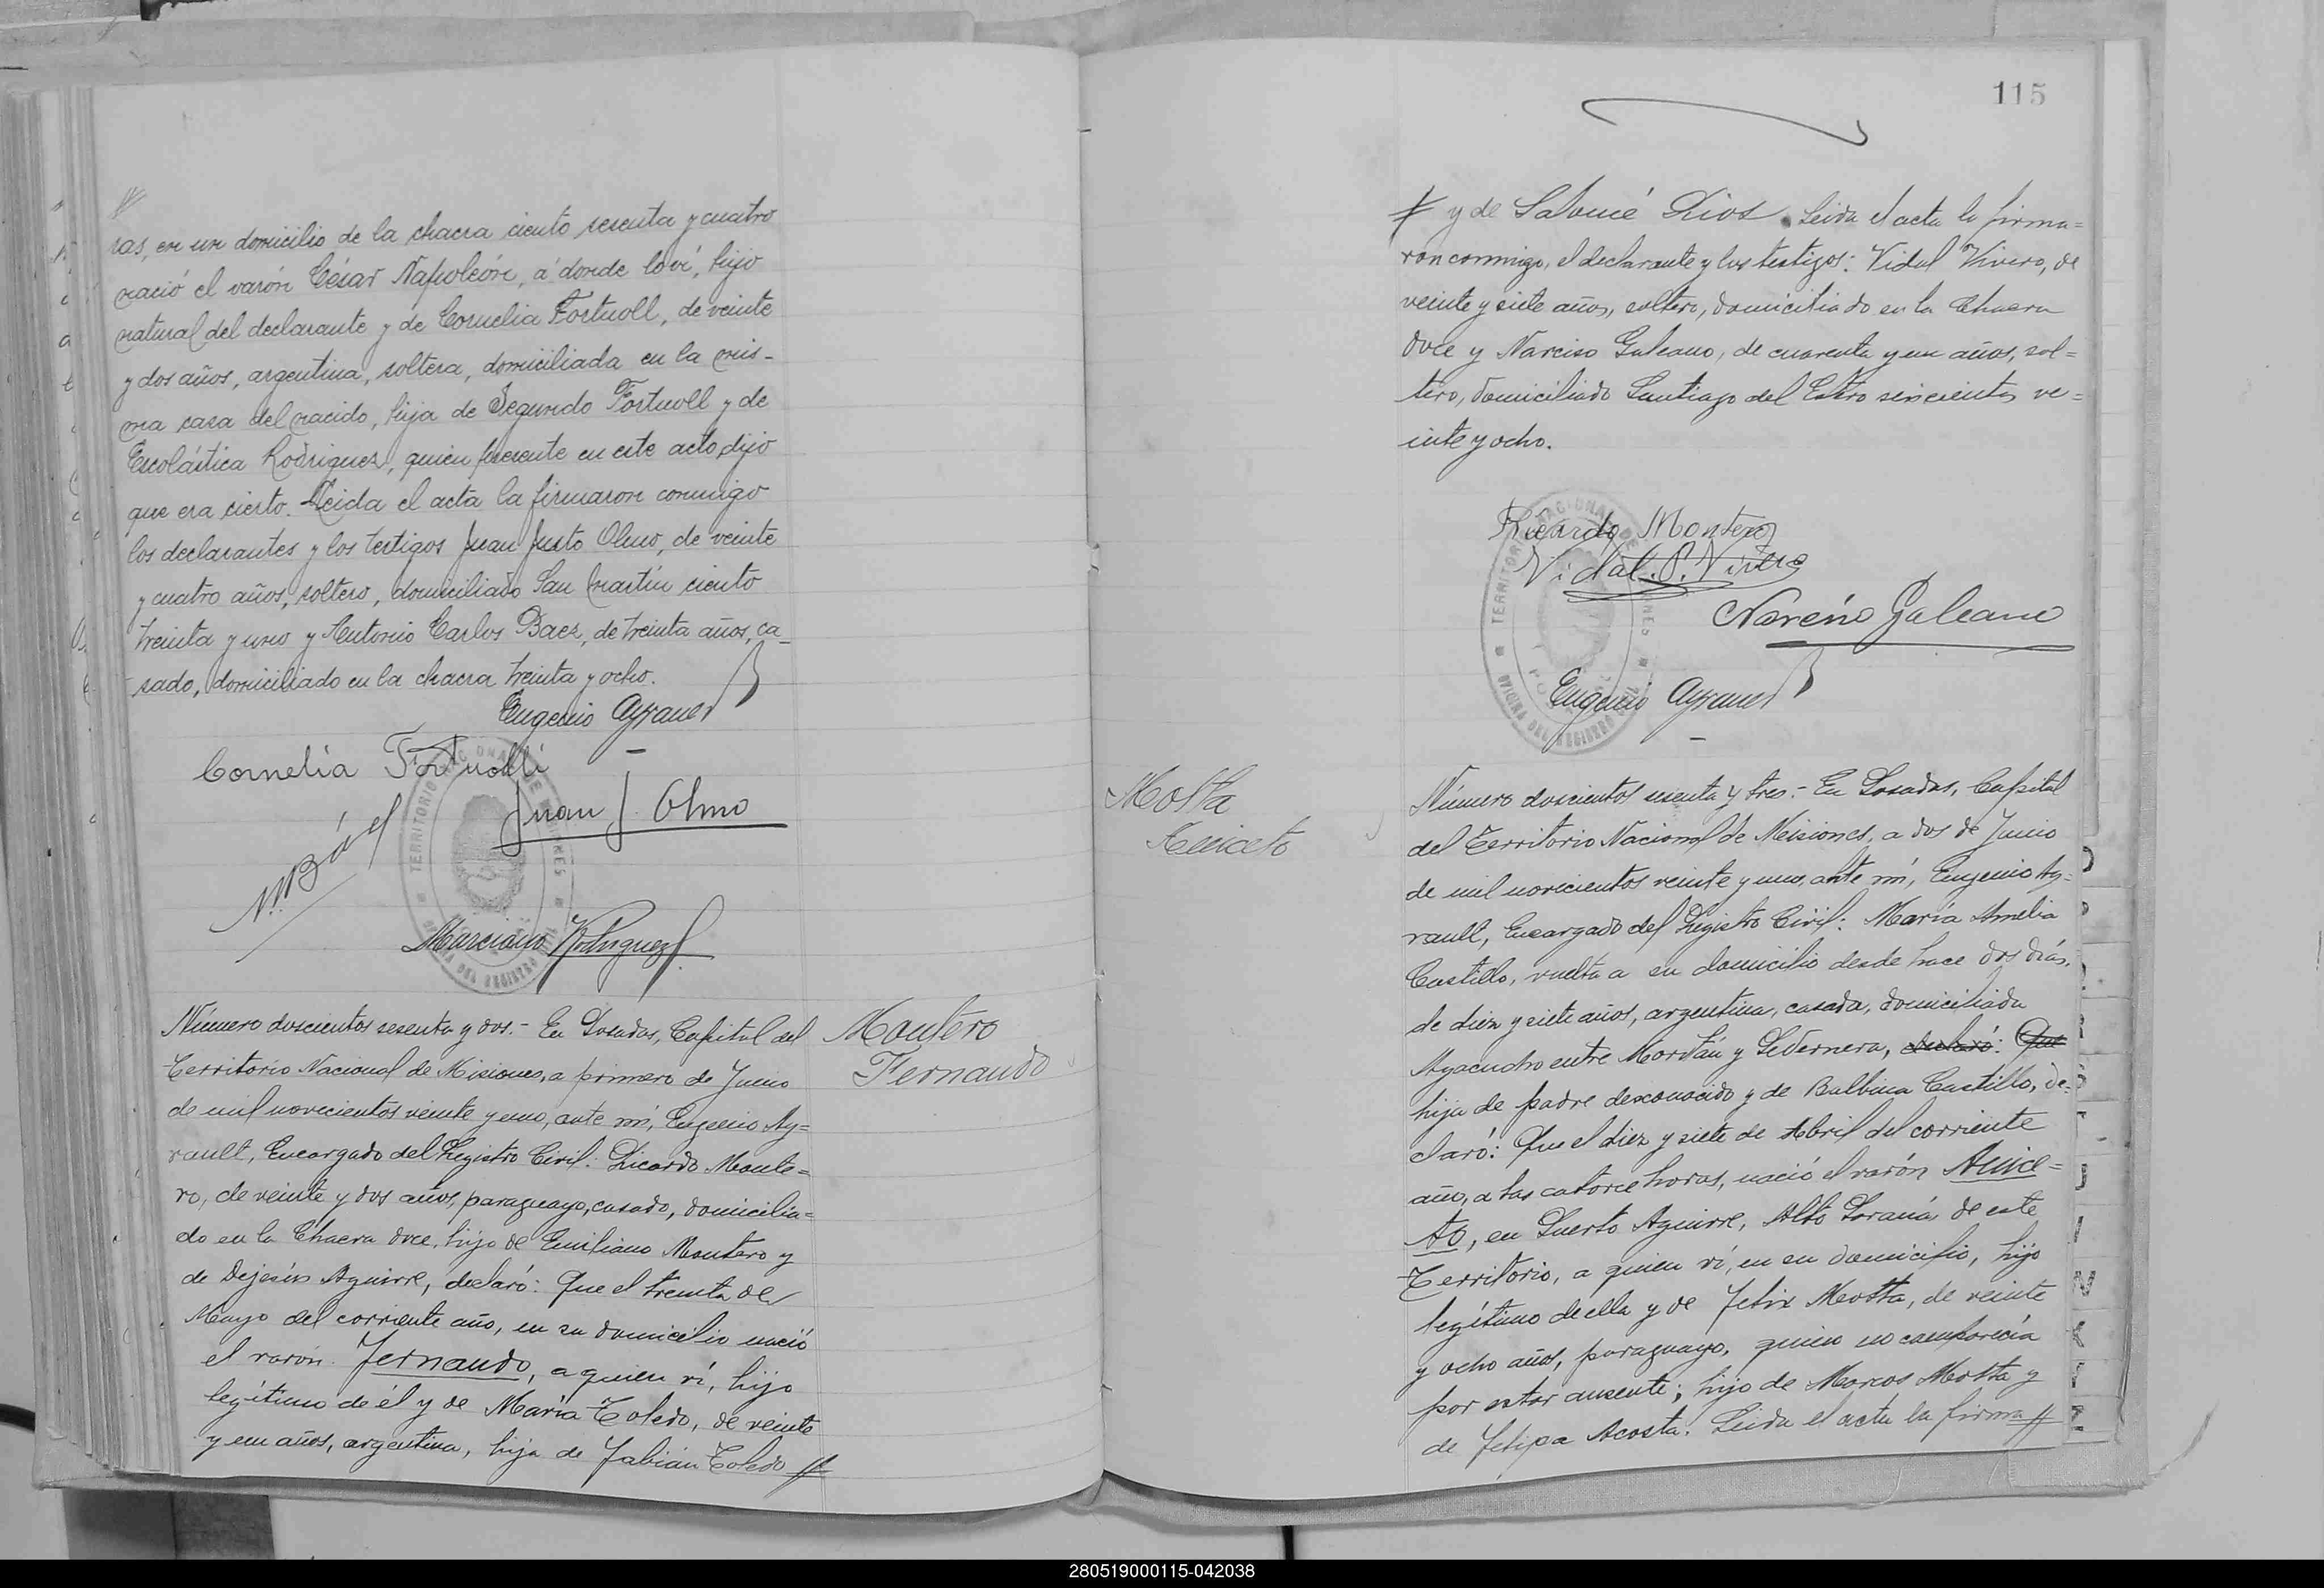 ras, en un domicilio de la chacra ciento sesenta y cuatro
nació el varón César Napoleón, a donde lo ví, hijo
natural del declarante y de Cornelia Fortuoll, de veinte
y dos años, argentina, soltera, domiciliada en la mis-
ma casa del nacido, hija de Segundo Fortuoll y de
Escolástica Rodriguez, quien presente en este acto, dijo
que era cierto. Leida el acta la firmaron conmigo
los declarantes y los testigos Juan Justo Olmo, de veinte
y cuatro años, soltero, domiciliado San Martín ciento
treinta y uno y Antonio Carlos Baez, de treinta años, ca-
sado, domiciliado en la chacra treinta y ocho.
Eugenio Ayrault
Cornelia
Juan J. Olmo
Marciano Rodriguez
Número doscientos sesenta y dos.- En Posadas, Capital del
Territorio Nacional de Misiones, a primero de Junio
de mil novecientos veinte y uno, ante mí, Eugenio Ay=
rault, Encargado del Registro Civil: Ricardo Monte=
ro, de veinte y dos años, paraguayo, casado, domicilia=
do en la Chacra doce, hijo de Emiliano Montero y
de Dejesús Aguirre, declaró: Que el treinta de
Mayo del corriente año, en su domicilio nació
el varón Fernando, a quien ví, hijo
legítimo de él y de María Toledo, de veinte
y un años, argentina, hija de Fabián Toledo #
Montero
Fernando
115
# y de Salomé Rios. Leida el acta la firma=
ron conmigo, el declarante y los testigos: Vidal Vivero, de
veinte y siete años, soltero, domiciliado en la Chacra
doce y Narciso Galeano, de cuarenta y un años, sol=
tero, domiciliado Santiago del Estero seiscientos ve=
inte y ocho.
Ricardo Montero
Vidal. P. Vivero
Narciso Galeano
Eugenio Ayrault
TERRITORIO NACIONAL DE MISIONES
OFICINA DEL REGISTRO
Motta
Aniceto
Número doscientos sesenta y tres.- En Posadas, Capital
del Territorio Nacional de Misiones, a dos de Junio
de mil novecientos veinte y uno, ante mí, Eugenio Ay=
rault, Encargado del Registro Civil: María Amelia
Castillo, vuelta a su domicilio desde hace dos días,
de diez y siete años, argentina, casada, domiciliada
Ayacucho entre Mordán y Pedernera, declaró: Que
hija de padre desconocido y de Balbina Castillo, de=
claró: Que el diez y siete de Abril del corriente
año, a las catorce horas, nació el varón Anice=
to, en Puerto Aguirre, Alto Paraná de este
Territorio, a quien ví, en su domicilio, hijo
legítimo de ella y de Felix Motta, de veinte
y ocho años, paraguayo, quien no comparecía
por estar ausente; hijo de Marcos Motta y
de Felipa Acosta. Leida el acta la firma #
280519000115-042038